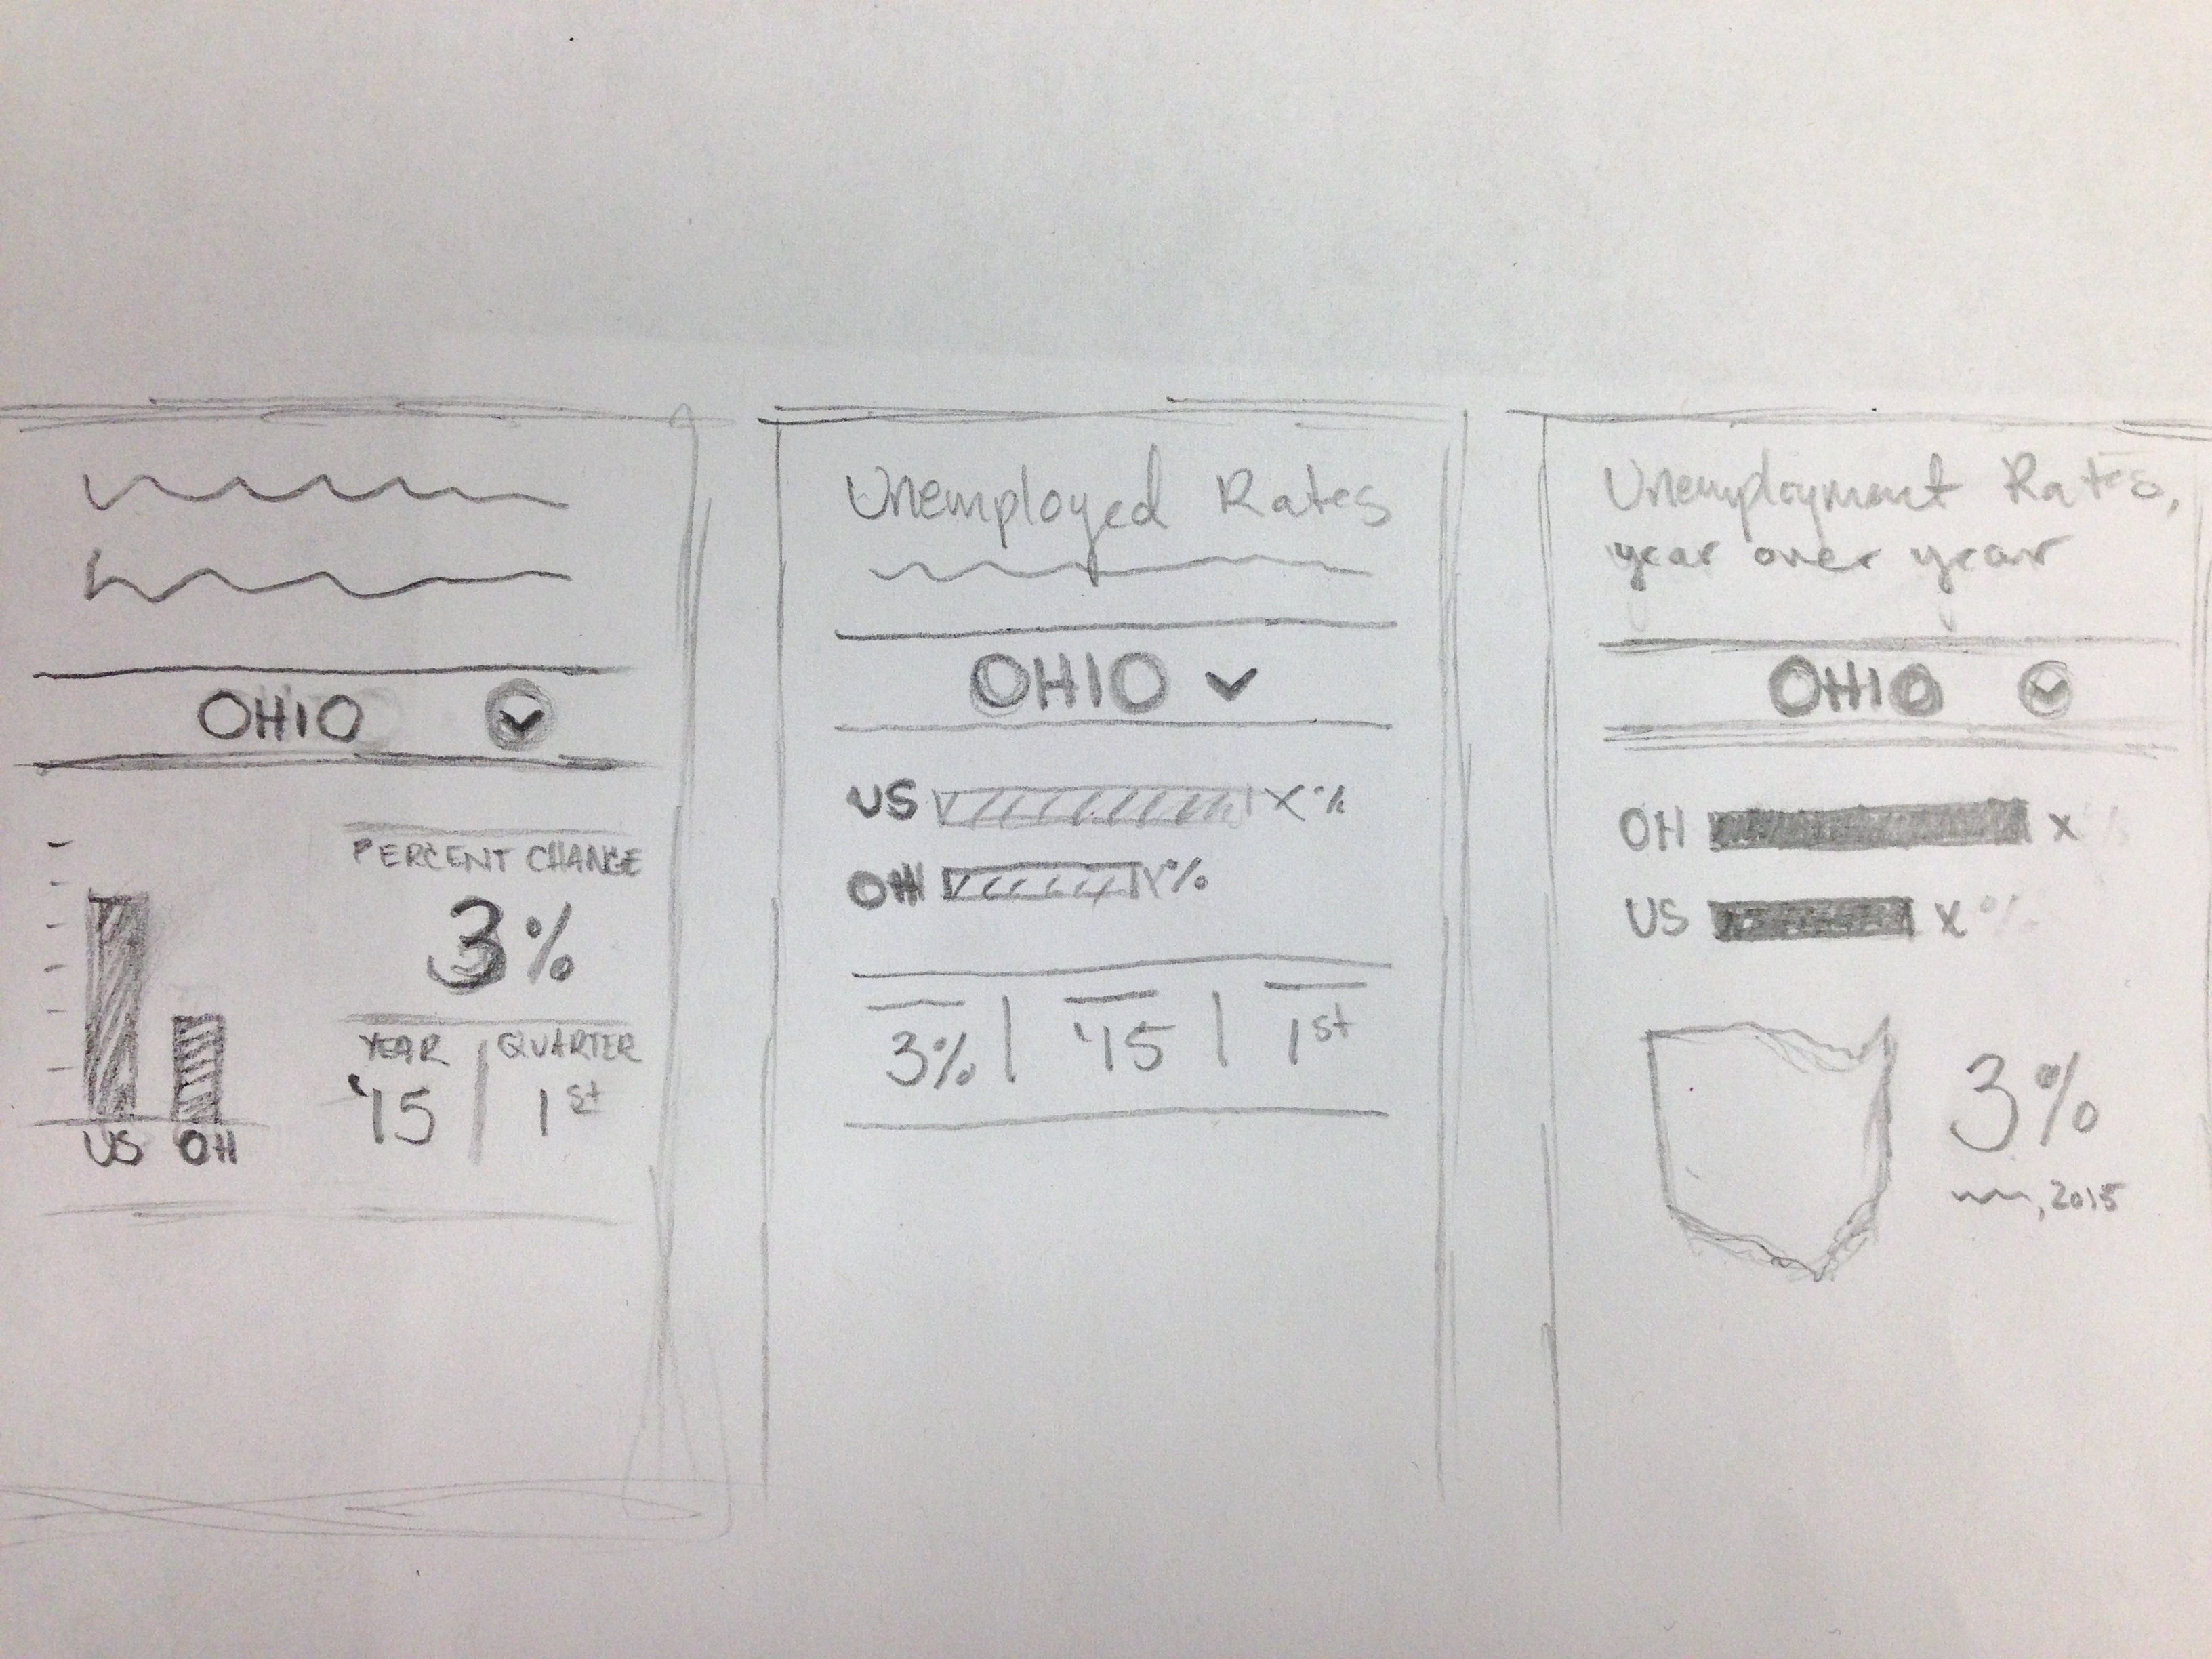 OHIO
PERCENT CHANGE
3%
YEAR | QUARTER
'15 | 1st
US OH
Unemployed Rates
OHIO
US X%
OH %
3% | '15 | 1st
Unemployment Rates,
year over year
OHIO
OH X%
US X%
3%
, 2015